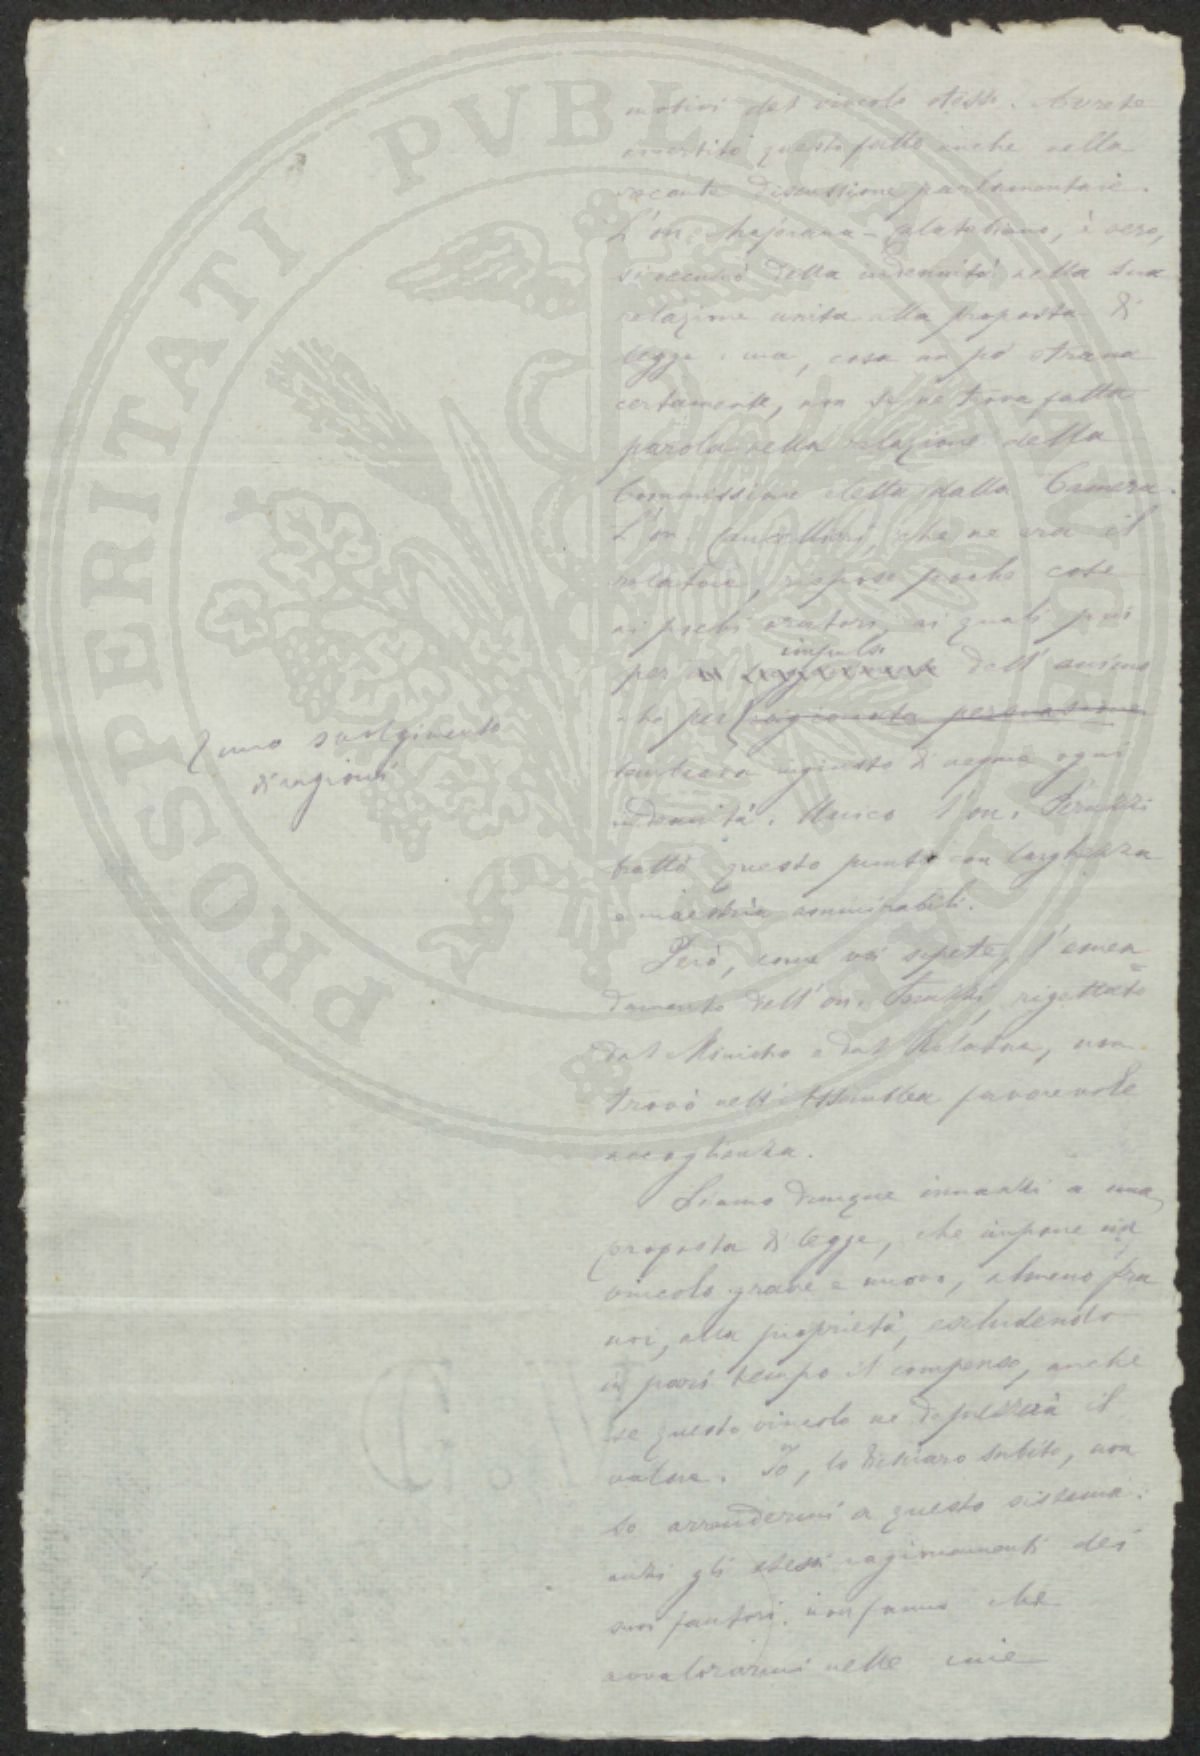 motivi del vincolo stesso. Avrete
avvertito questo fatto anche nella
recente discussione parlamentare.
L'on. Majorana-Calatabiano, è vero,
si occupò della indennità nella sua
relazione unita alla proposta di
legge: ma, cosa un pò strana
certamente, non se ne trova fatta
parola nella relazione della
Commissione eletta dalla Camera.
L'on. Cancellieri, che ne era il
relatore, rispose poche cose
ai pochi oratori, ai quali più
impulso
per dell'animo
che per ragionata persuasione
sembrava ingiusto di negare ogni
indennità. Unico l'on. Peruzzi
trattò questo punto con larghezza
e maestria ammirabili.
Però, come voi sapete, l'emen
damento dell'on. Peruzzi, rigettato
dal Ministro e dal Relatore, non
trovò nell'Assemblea favorevole
accoglienza.
Siamo dunque innanzi a una
proposta di legge, che impone un
vincolo grave e nuovo, almeno fra
noi, alla proprietà, escludendo
in pari tempo il compenso, anche
se questo vincolo ne deprezzerà il
valore. Io, lo dichiaro subito, non
so arrendermi a questo sistema:
anzi gli stessi ragionamenti dei
suoi fautori non fanno che
avvalorarmi nelle mie
svolgimento
di ragioni
PROSPERITATI PVBLICAE